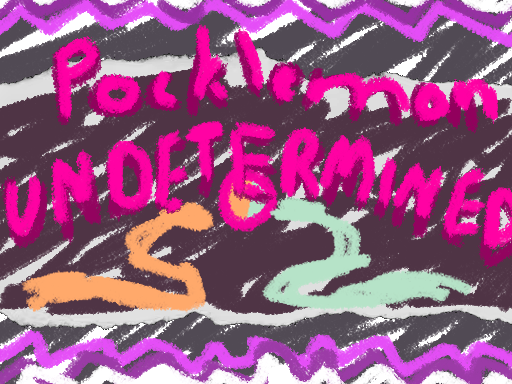 Pocklemon
UNDETERMINED